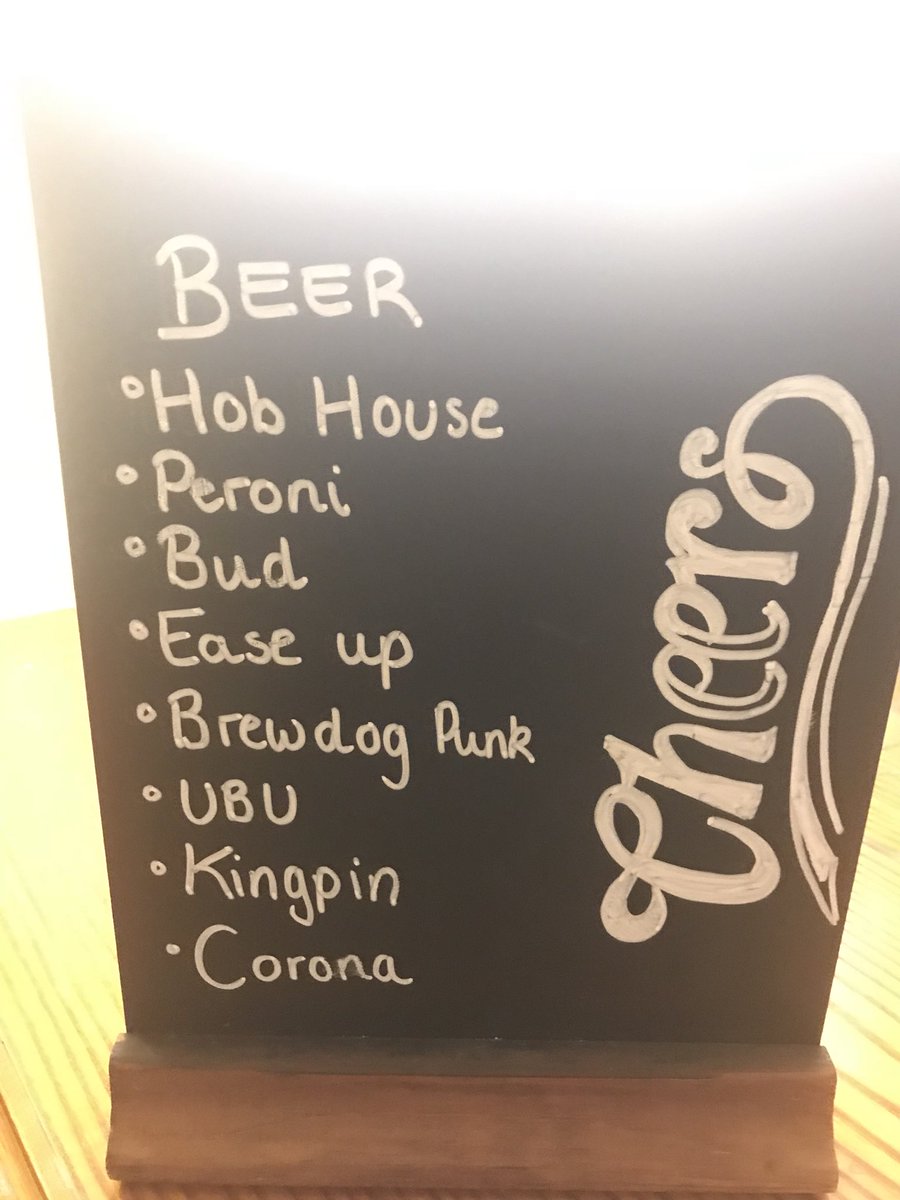 BEER
Hob House
Peroni
Bud
Ease up
Brewdog Punk
UBU
Kingpin
Corona
Cheers